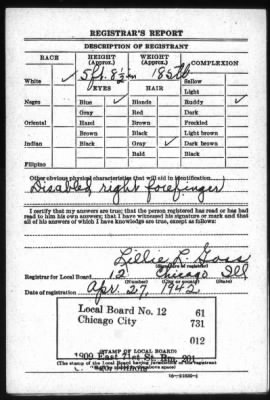 REGISTRAR'S REPORT
DESCRIPTION OF REGISTRANT
RACE HEIGHT (Approx.) WEIGHT (Approx.) COMPLEXION
5 ft. 8 1/2 in 185 lb.
White ✓ Sallow
EYES HAIR Light
Negro Blue ✓ Blonde Ruddy ✓
Gray Red Dark
Oriental Hazel Brown Freckled
Brown Black Light brown
Indian Black Gray ✓ Dark brown
Bald Black
Filipino
Other obvious physical characteristics that will aid in identification
Disabled right forefinger
I certify that my answers are true; that the person registered has read or has had
read to him his own answers; that I have witnessed his signature or mark and that
all of his answers of which I have knowledge are true, except as follows:
Lillie L. Goss
(Signature of registrar)
Registrar for Local Board 12 Chicago Ill
(Number) (City or county) (State)
Date of registration Apr. 27, 1942
Local Board No. 12 61
Chicago City 731
012
(STAMP OF LOCAL BOARD)
1909 East 71st St. Rm. 201
(The stamp of the Local Board having jurisdiction of the registrant